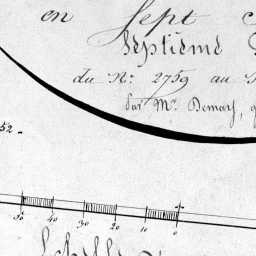 en Sept
Septième
du N.º 2759 au
par Mr. Demay,
52.
50 40 30 20 10 0
Echelle